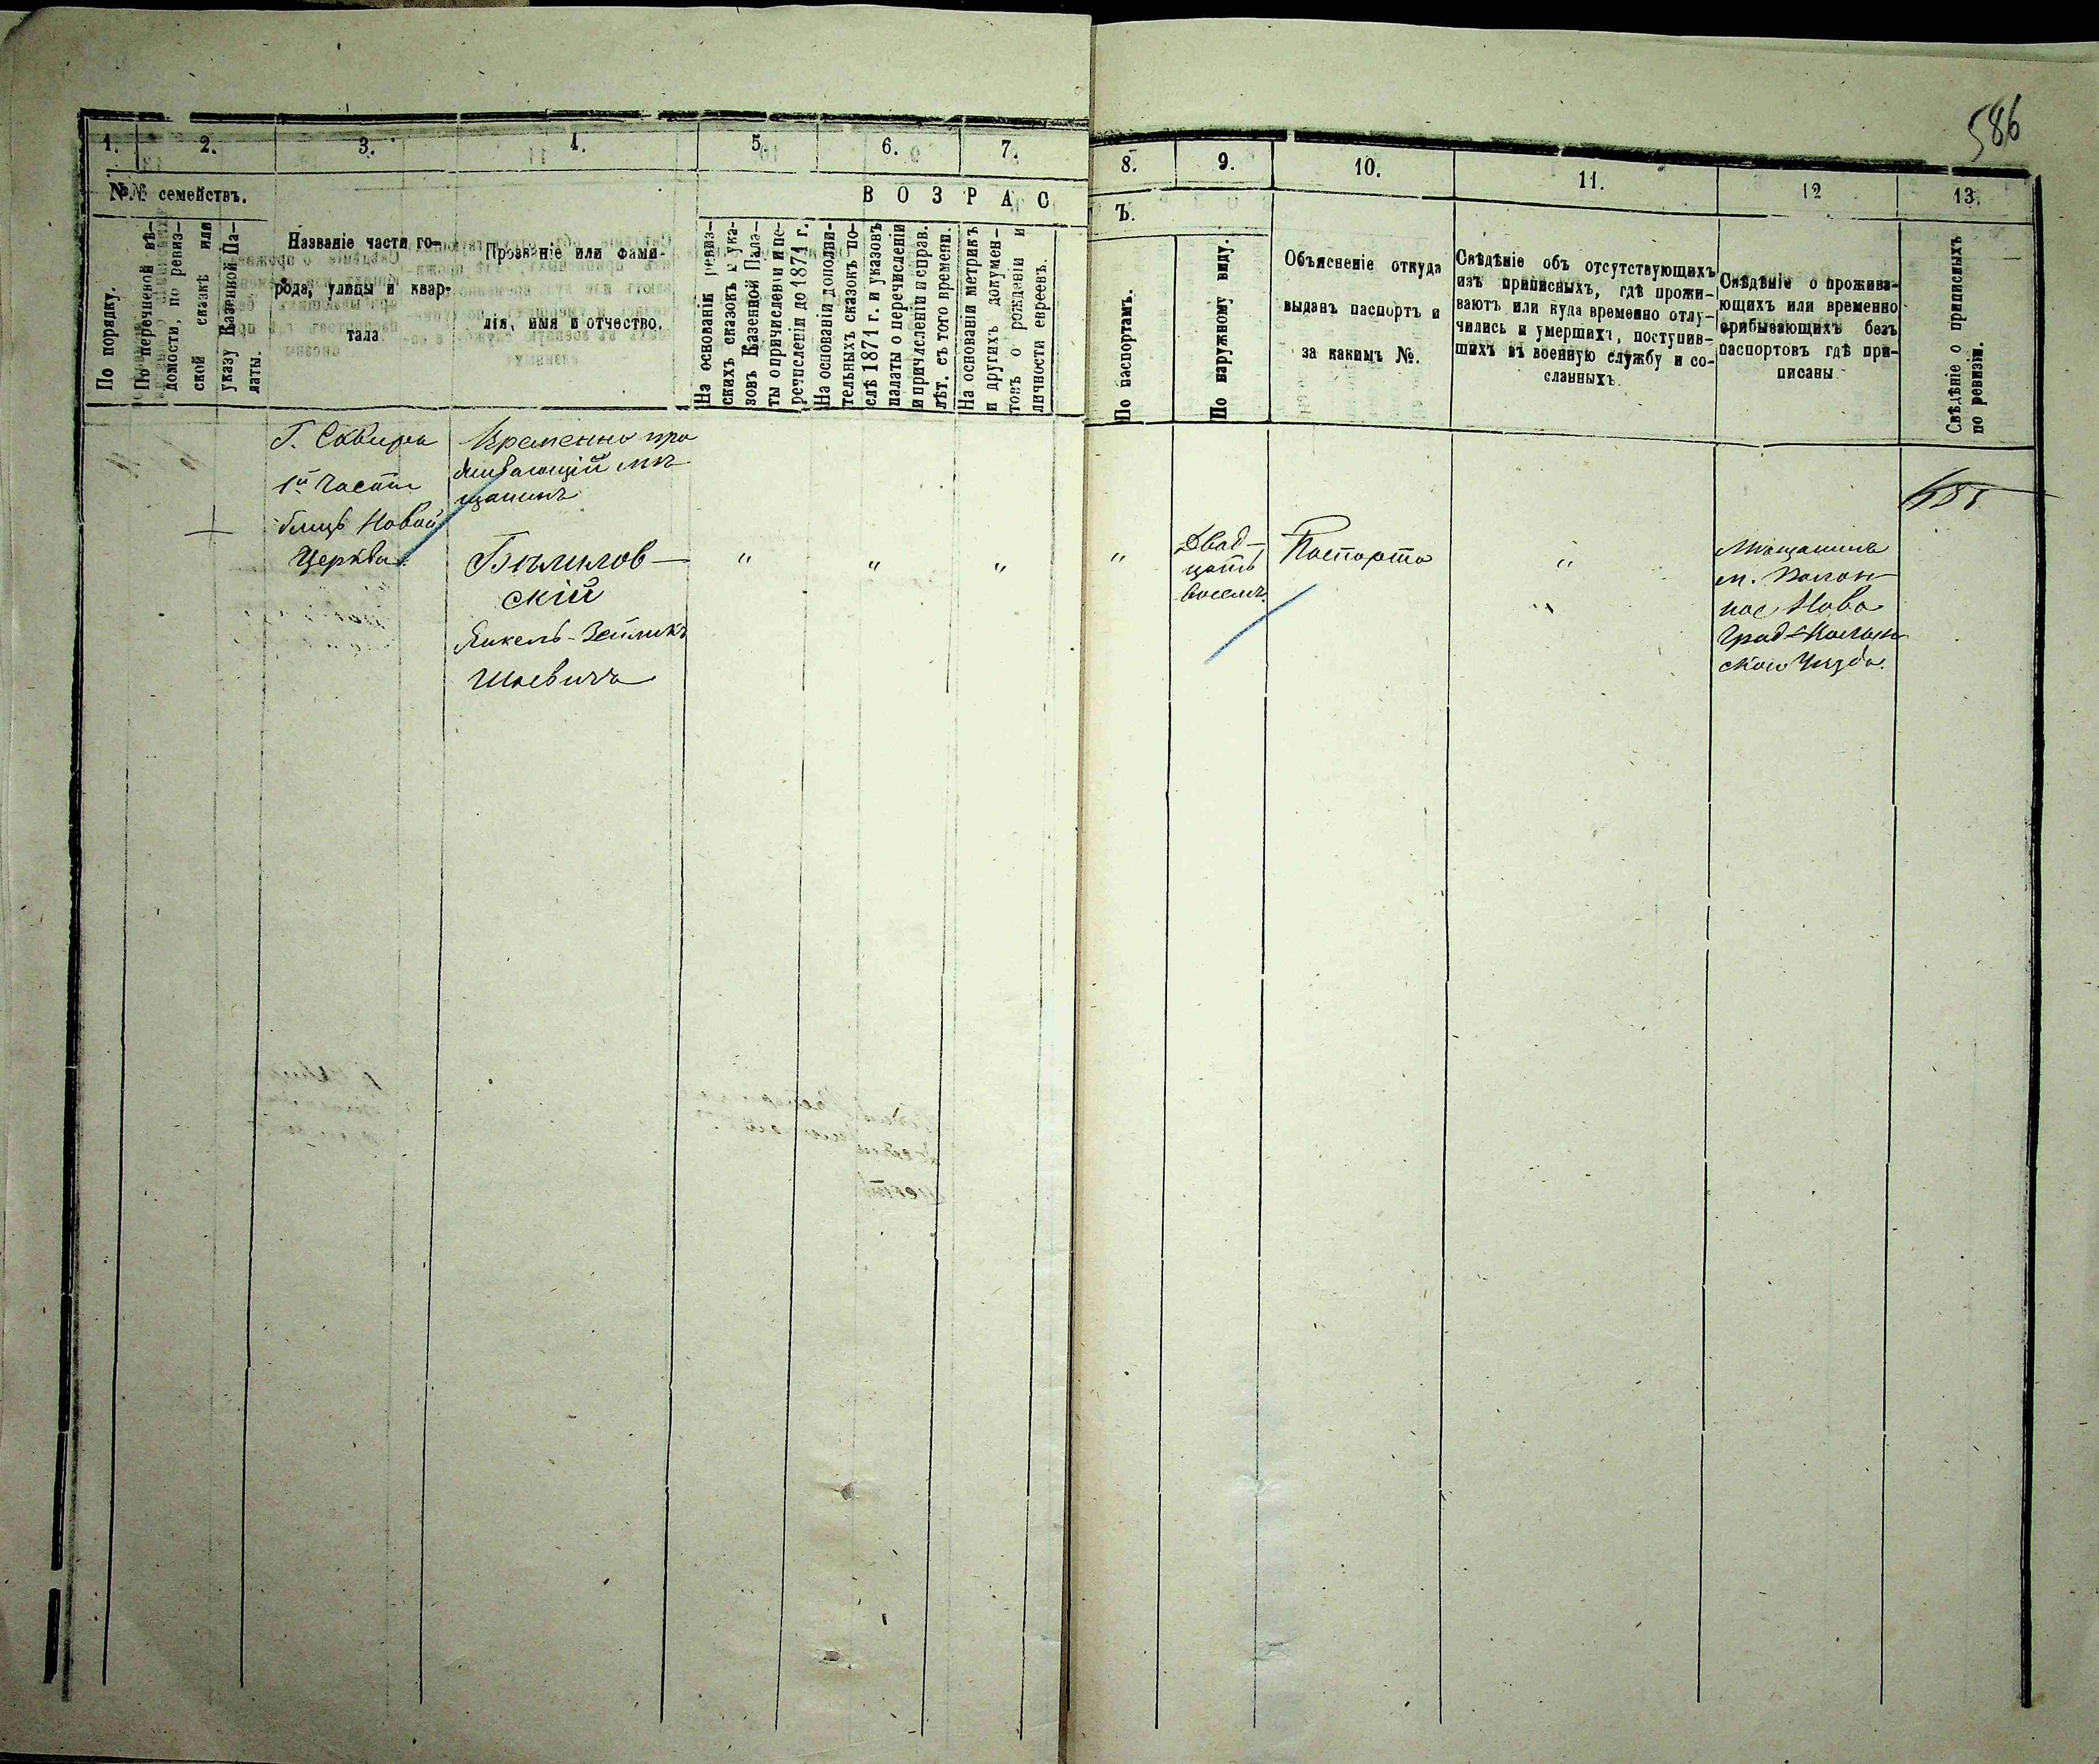 586
1. 2. 3. 4. 5. 6. 7. 8. 9. 10. 11. 12 13.
№№ семействъ.
По порядку.
По перечневой вѣ-
домости, по ревиз-
ской сказкѣ или
указу Казенной Па-
латы.
Названіе части го-
рода, улицы и квар-
тала
Прозваніе или фами-
лія, имя и отчество.
ВОЗРАСТЪ.
На основаніи ревиз-
скихъ сказокъ и ука-
зовъ Казенной Пала-
ты о причисленіи и пе-
речисленіи до 1871 г.
На основаніи дополни-
тельныхъ сказокъ по-
слѣ 1871 г. и указовъ
палаты о перечисленіи
и причисленіи и справ.
лѣт. съ того времени.
На основаніи метрикъ
и другихъ докумен-
товъ о рожденіи и
личности евреевъ.
По паспортамъ.
По наружному виду.
Объясненіе откуда
выданъ паспортъ и
за какимъ №.
Свѣдѣніе объ отсутствующихъ
изъ приписныхъ, гдѣ прожи-
ваютъ или куда временно отлу-
чились и умершихъ, поступив-
шихъ въ военную службу и со-
сланныхъ
Свѣдѣніе о прожива-
ющихъ или временно
прибывающихъ безъ
паспортовъ гдѣ при-
писаны
Свѣдѣніе о приписныхъ
по ревизіи.
Г. Сквира
1й части
близь Новой
Церкви.
Временно про
живающій мѣ
щанинъ
Бѣлилов-
скій
Янкель-Зейликъ
Шаевичъ
" " " "
Двад-
цать
восемь.
Паспортъ
"
Мѣщанинъ
м. Полон-
ное, Ново
Град-Волын
скаго Уѣзда.